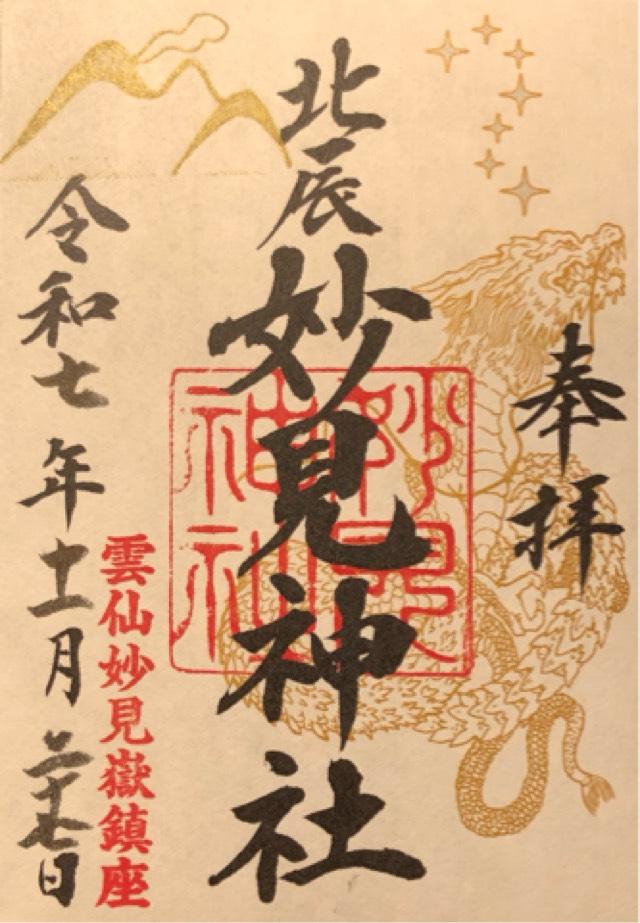 奉拝
北辰
妙見神社
妙見
神社
雲仙妙見嶽鎮座
令和七年十一月二十七日